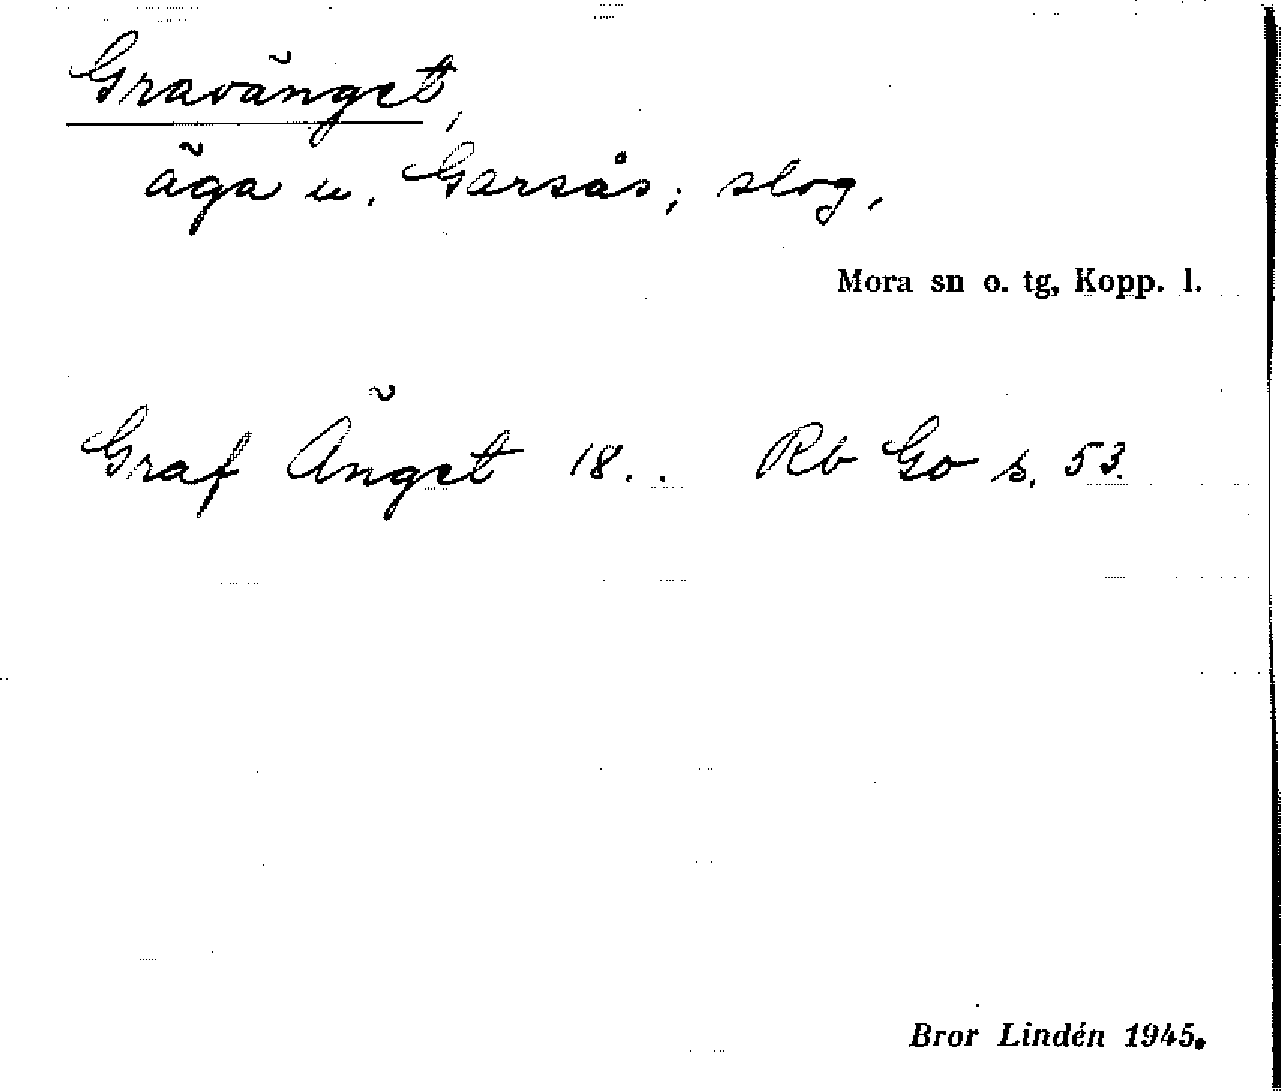 Gravänget,
äga u. Garsås; slog.
Mora sn o. tg, Kopp. l.
Graf Änget 18.. Rb Go s. 53.
Bror Lindén 1945.